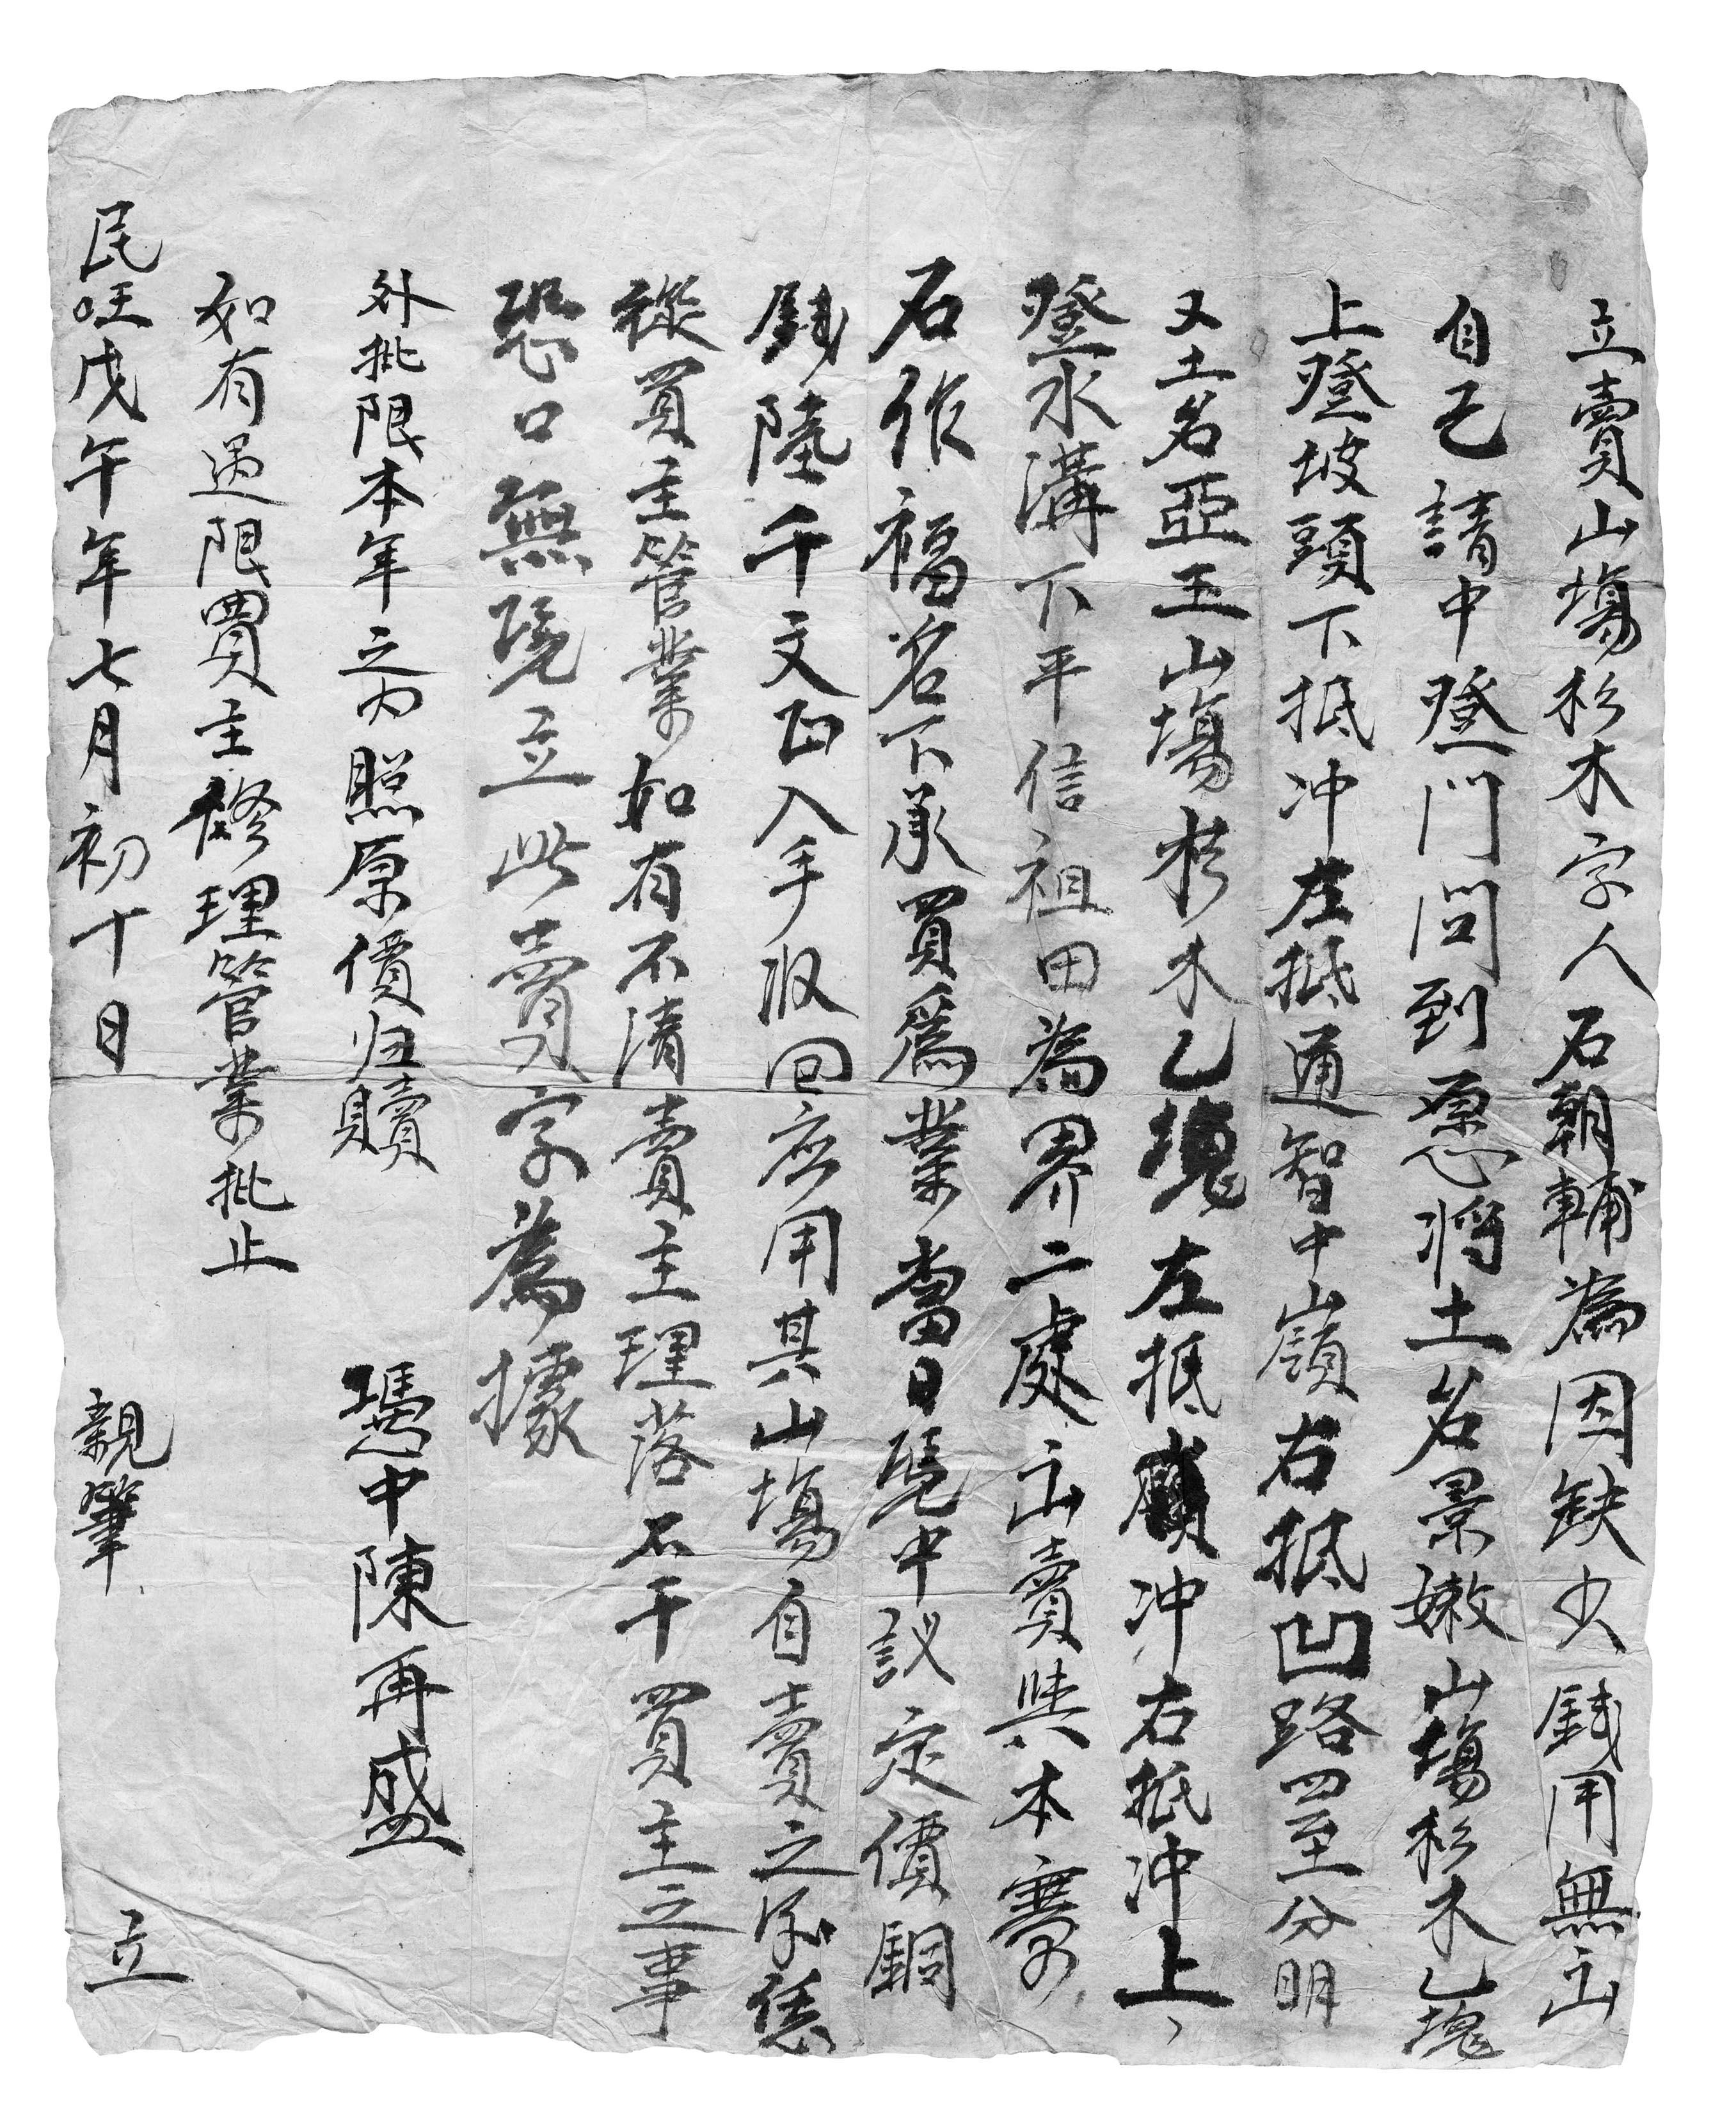 立賣山塲杉木字人石朝輔為因缺少錢用無出
自己請中登門問到愿將土名景嫩山塲杉木乙塊
上登坡頭下抵冲左抵通智中嶺右抵凹路四至分明
又土名亞玉山塲杉木乙塊左抵嶺冲右抵冲上
登水溝下平信祖田為界二處出賣與本寨
石作福名下承買爲業當日凴中議定價銅
錢陸千文正入手收回应用其山塲自賣之后恁
從買主管業如有不清賣主理落不干買主之事
恐口無凴立此賣字為據
外批限本年之内照原價归贖
憑中陳再盛
如有過限買主修理管業批止
民国戊午年七月初十日 親筆 立